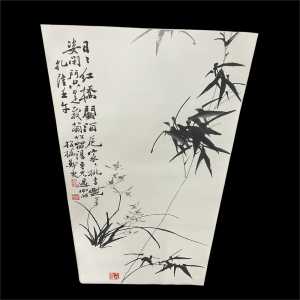 日々紅橋鬭酒卮家々桃李艷芳
姿閉門只是栽蘭竹留得春光過四時
乾隆壬午
板橋鄭燮